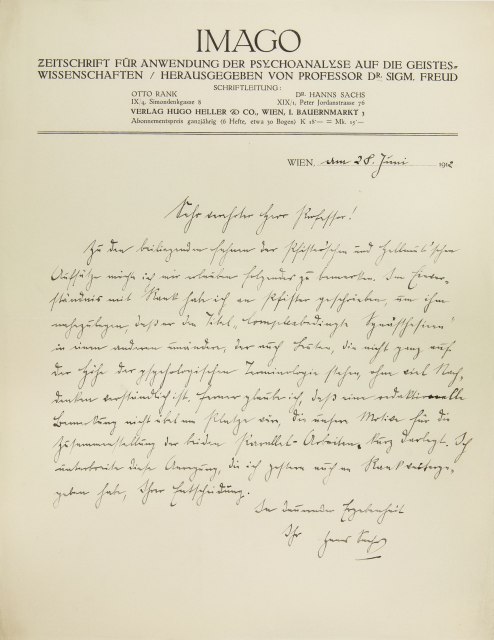 IMAGO
ZEITSCHRIFT FÜR ANWENDUNG DER PSYCHOANALYSE AUF DIE GEISTES-
WISSENSCHAFTEN / HERAUSGEGEBEN VON PROFESSOR DR. SIGM. FREUD
SCHRIFTLEITUNG:
OTTO RANK DR. HANNS SACHS
IX/4, Simondenkgasse 8 XIX/1, Peter Jordanstrasse 76
VERLAG HUGO HELLER & CO., WIEN, I. BAUERNMARKT 3
Abonnementspreis ganzjährig (6 Hefte, etwa 30 Bogen) K 18·— = Mk. 15·—
WIEN, am 28. Juni 1912
Sehr verehrter Herr Professor!
Zu den beiliegenden Fahnen der Pfister'schen und Hellmut'schen
Aufsätze möchte ich mir erlauben folgendes zu bemerken. Im Einver-
ständnis mit Rank habe ich an Pfister geschrieben, um ihm
nahezulegen, daß er den Titel „
in einen anderen umändere, der auch Leuten, die nicht ganz auf
der Höhe der psychologischen Terminologie stehen, ohne viel Nach-
denken verständlich ist. Ferner glaube ich, daß eine redaktionelle
Bemerkung nicht übel am Platze wäre, die unsere Motive für die
Zusammenstellung der beiden Parallel-Arbeiten kurz darlegt. Ich
unterbreite diese Anregung, die ich gestern auch an Rank weiterge-
geben habe, Ihrer Entscheidung.
In dauernder Ergebenheit
Ihr Hanns Sachs